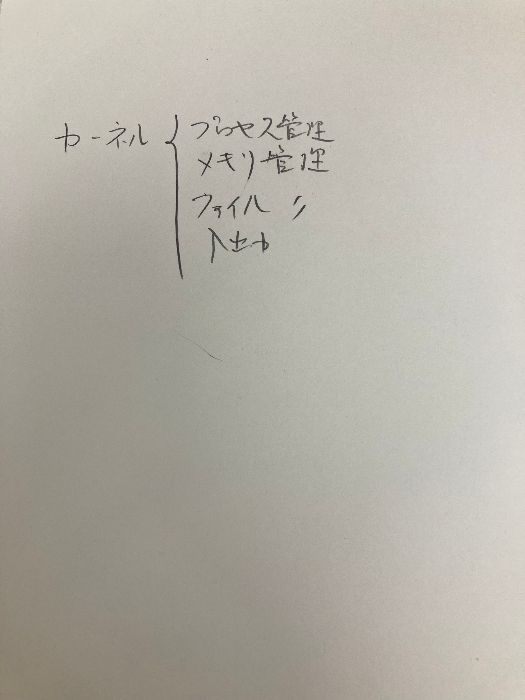 カーネル { プロセス管理
メモリ管理
ファイル 〃
入出力